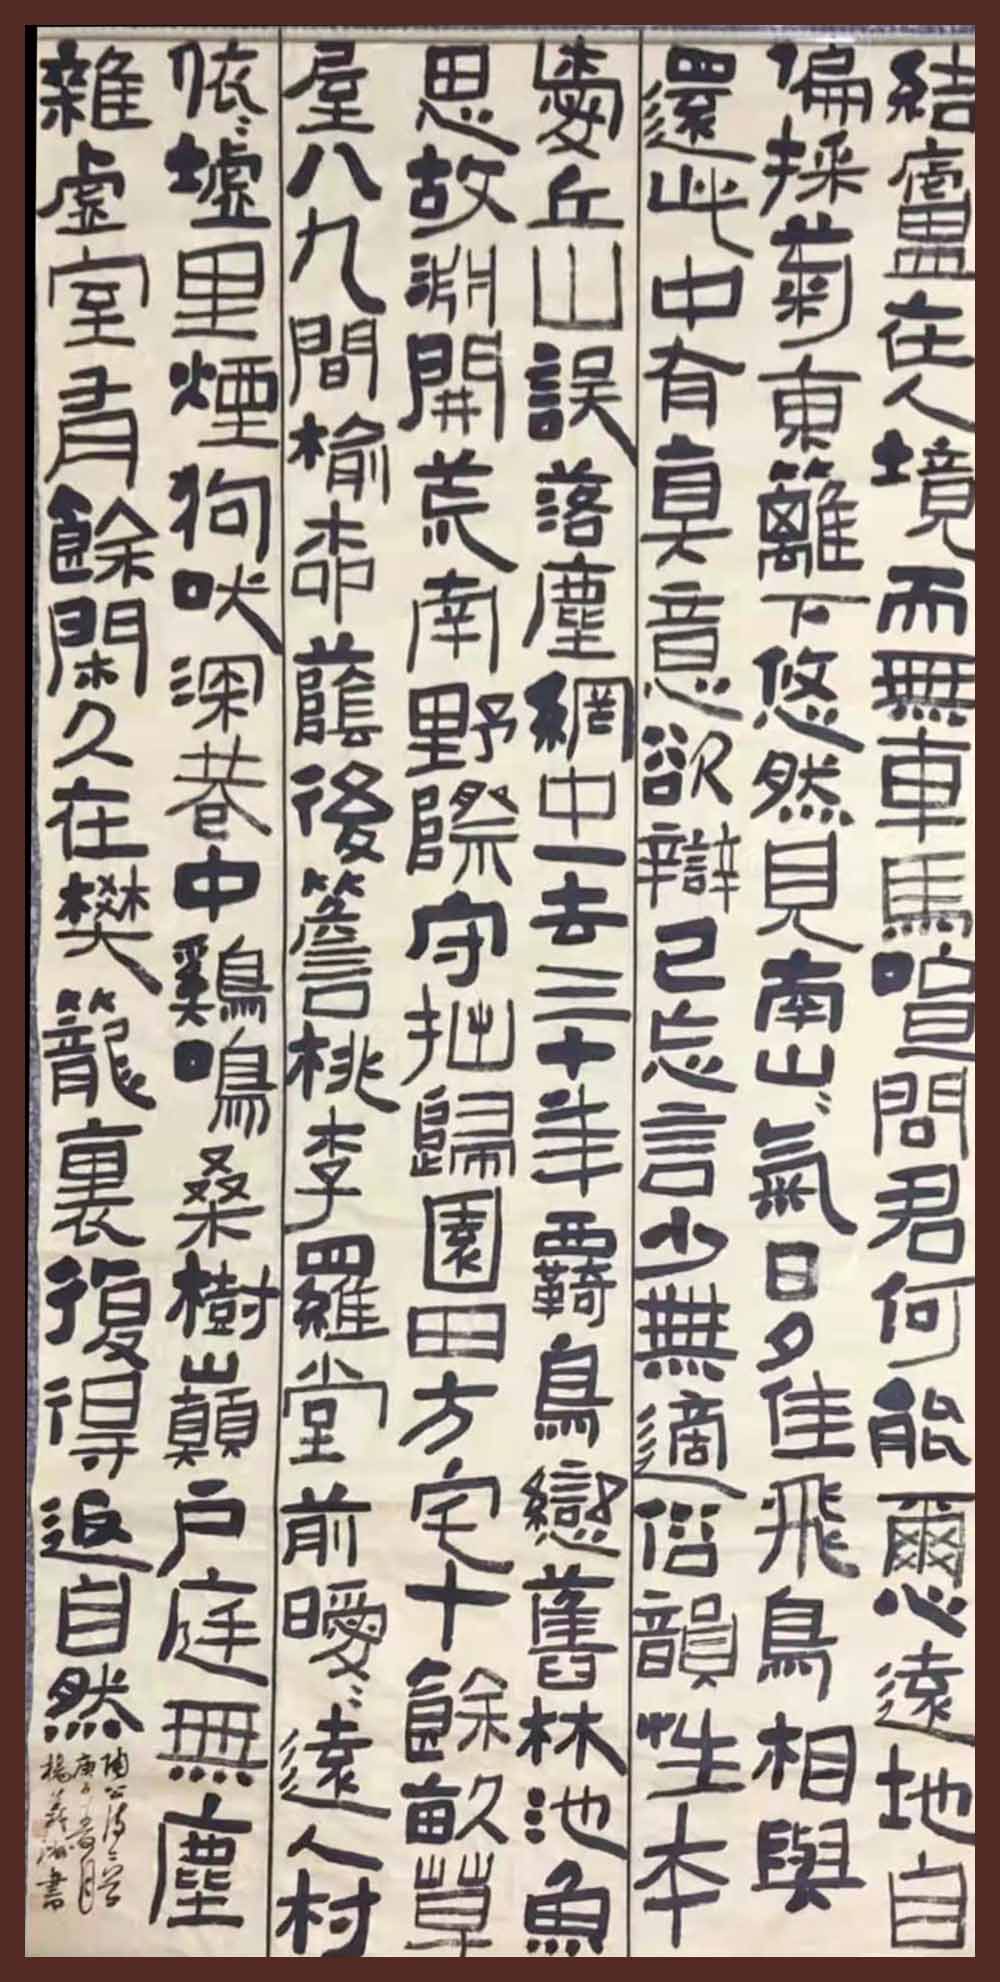 結廬在人境而無車馬喧問君何能爾心遠地自
偏採菊東籬下悠然見南山〻氣日夕佳飛鳥相與
還此中有真意欲辯已忘言少無適俗韻性本
愛丘山誤落塵網中一去三十年羈鳥戀舊林池魚
思故淵開荒南野際守拙歸園田方宅十餘畝草
屋八九間榆柳蔭後簷桃李羅堂前曖〻遠人村
依〻墟里煙狗吠深巷中鷄鳴桑樹巔戶庭無塵
雜虛室有餘閑久在樊籠裏復得返自然
陶公詩二首
庚子月
楊書